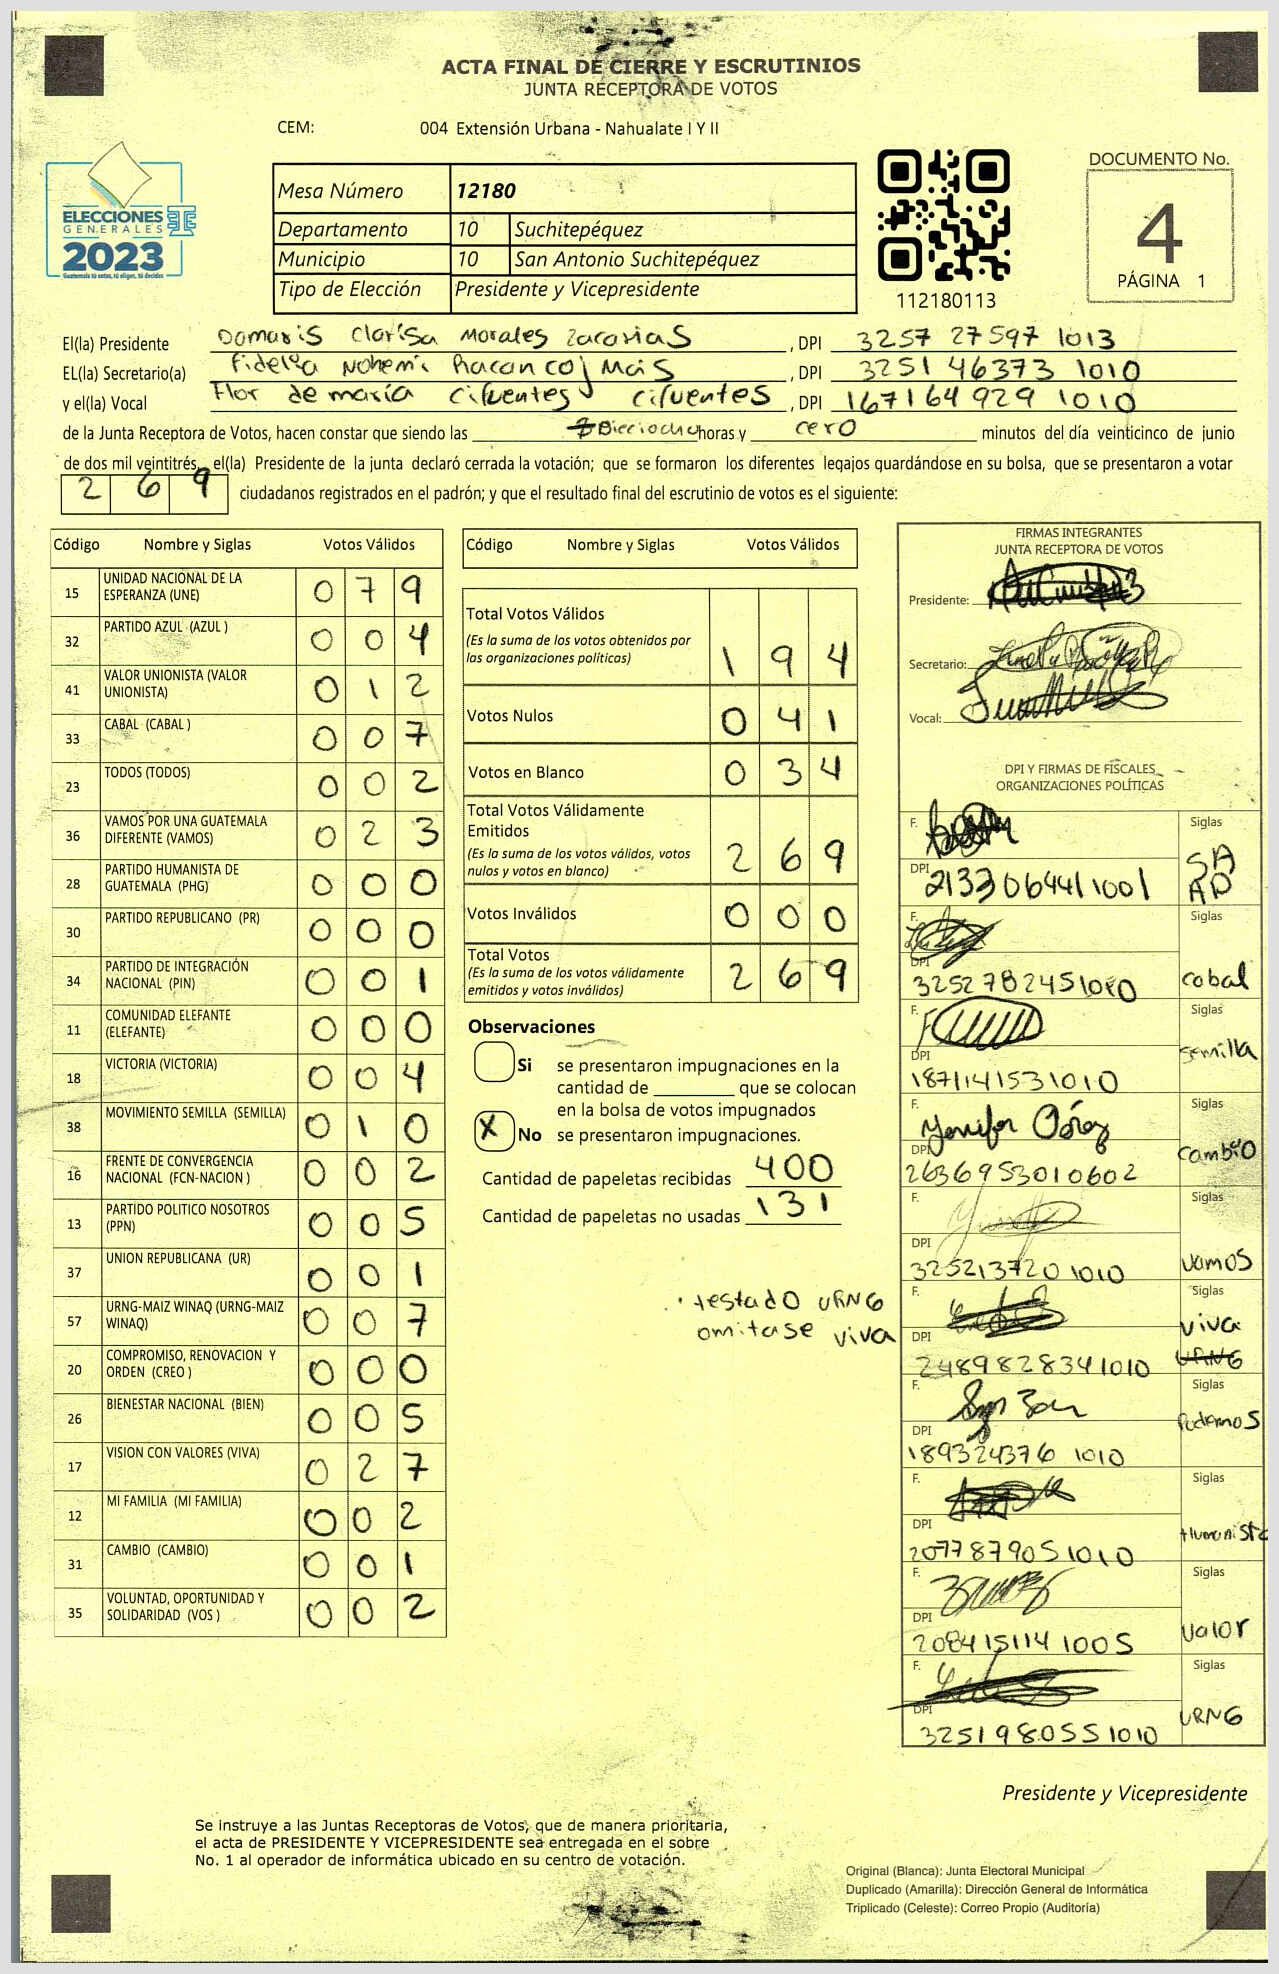 ACTA FINAL DE CIERRE Y ESCRUTINIOS
JUNTA RECEPTORA DE VOTOS
CEM: 004 Extensión Urbana - Nahualate I Y II
ELECCIONES
GENERALES
2023
Guatemala tú votas, tú eliges, tú decides
Mesa Número 12180
Departamento 10 Suchitepéquez
Municipio 10 San Antonio Suchitepéquez
Tipo de Elección Presidente y Vicepresidente
112180113
DOCUMENTO No.
4
PÁGINA 1
El(la) Presidente Damaris Clarisa Morales Zacarias , DPI 3257 27597 1013
EL(la) Secretario(a) Fidelia Nohemi Racancoj Más , DPI 3251 46373 1010
y el(la) Vocal Flor de maría Cifuentes Cifuentes , DPI 167164929 1010
de la Junta Receptora de Votos, hacen constar que siendo las Dieciocho horas y cero minutos del día veinticinco de junio
de dos mil veintitrés, el(la) Presidente de la junta declaró cerrada la votación; que se formaron los diferentes legajos guardándose en su bolsa, que se presentaron a votar
2 6 9 ciudadanos registrados en el padrón; y que el resultado final del escrutinio de votos es el siguiente:
Código Nombre y Siglas Votos Válidos
15 UNIDAD NACIONAL DE LA
ESPERANZA (UNE) 0 7 9
32 PARTIDO AZUL (AZUL ) 0 0 4
41 VALOR UNIONISTA (VALOR
UNIONISTA) 0 1 2
33 CABAL (CABAL ) 0 0 7
23 TODOS (TODOS) 0 0 2
36 VAMOS POR UNA GUATEMALA
DIFERENTE (VAMOS) 0 2 3
28 PARTIDO HUMANISTA DE
GUATEMALA (PHG) 0 0 0
30 PARTIDO REPUBLICANO (PR) 0 0 0
34 PARTIDO DE INTEGRACIÓN
NACIONAL (PIN) 0 0 1
11 COMUNIDAD ELEFANTE
(ELEFANTE) 0 0 0
18 VICTORIA (VICTORIA) 0 0 4
38 MOVIMIENTO SEMILLA (SEMILLA) 0 1 0
16 FRENTE DE CONVERGENCIA
NACIONAL (FCN-NACION ) 0 0 2
13 PARTIDO POLITICO NOSOTROS
(PPN) 0 0 5
37 UNION REPUBLICANA (UR) 0 0 1
57 URNG-MAIZ WINAQ (URNG-MAIZ
WINAQ) 0 0 7
20 COMPROMISO, RENOVACION Y
ORDEN (CREO ) 0 0 0
26 BIENESTAR NACIONAL (BIEN) 0 0 5
17 VISION CON VALORES (VIVA) 0 2 7
12 MI FAMILIA (MI FAMILIA) 0 0 2
31 CAMBIO (CAMBIO) 0 0 1
35 VOLUNTAD, OPORTUNIDAD Y
SOLIDARIDAD (VOS ) 0 0 2
Código Nombre y Siglas Votos Válidos
Total Votos Válidos
(Es la suma de los votos obtenidos por
las organizaciones políticas) 1 9 4
Votos Nulos 0 4 1
Votos en Blanco 0 3 4
Total Votos Válidamente
Emitidos
(Es la suma de los votos válidos, votos
nulos y votos en blanco) 2 6 9
Votos Inválidos 0 0 0
Total Votos
(Es la suma de los votos válidamente
emitidos y votos inválidos) 2 6 9
Observaciones
Si se presentaron impugnaciones en la
cantidad de ________ que se colocan
en la bolsa de votos impugnados
X No se presentaron impugnaciones.
Cantidad de papeletas recibidas 400
Cantidad de papeletas no usadas 131
testado URNG
omitase viva
FIRMAS INTEGRANTES
JUNTA RECEPTORA DE VOTOS
Presidente:
Secretario:
Vocal:
DPI Y FIRMAS DE FISCALES
ORGANIZACIONES POLÍTICAS
F. Siglas
DPI 2133064411001
F. Siglas
DPI 3252782451010 cabal
F. Siglas
DPI 1871141531010 semilla
F. Yennifer Pérez Siglas
DPI 2636953010602 cambio
F. Siglas
DPI 3252137201010 vamos
F. Siglas
viva
DPI 2489828341010 URNG
F. Siglas
DPI 189324376 1010 Podemos
F. Siglas
DPI 2077879051010 Humanista
F. Siglas
DPI 2084151141005 valor
F. Siglas
DPI 3251980551010 URNG
Presidente y Vicepresidente
Se instruye a las Juntas Receptoras de Votos, que de manera prioritaria,
el acta de PRESIDENTE Y VICEPRESIDENTE sea entregada en el sobre
No. 1 al operador de informática ubicado en su centro de votación.
Original (Blanca): Junta Electoral Municipal
Duplicado (Amarilla): Dirección General de Informática
Triplicado (Celeste): Correo Propio (Auditoría)